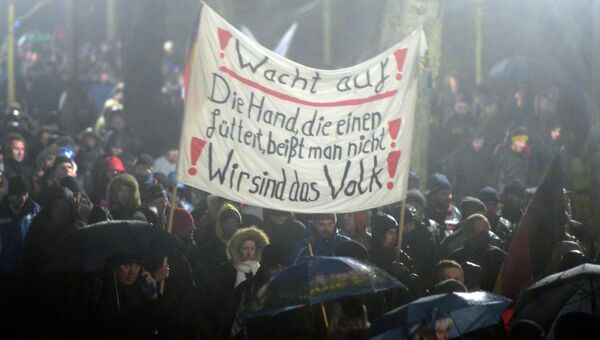 ! Wacht auf !
Die Hand, die einen
füttert, beißt man nicht
! Wir sind das Volk !